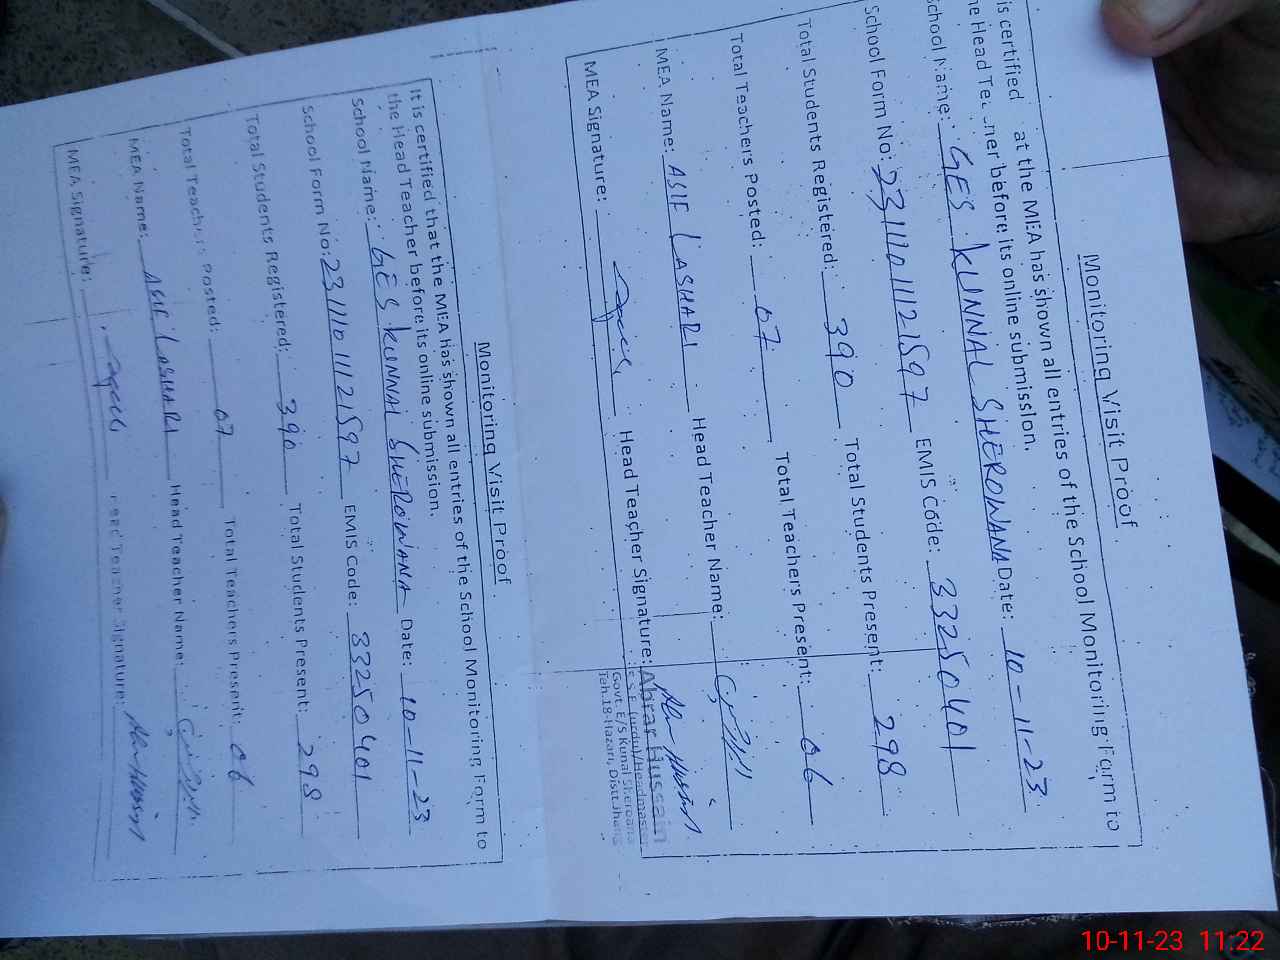 Monitoring Visit Proof
is certified at the MEA has shown all entries of the School Monitoring Form to
he Head Teacher before its online submission.
School Name: GES KUNNAL SHEROWANA Date: 10-11-23
School Form No: 23111011121597 EMIS Code: 33250401
Total Students Registered: 390 Total Students Present: 298
Total Teachers Posted: 07 Total Teachers Present: 06
MEA Name: ASIF LASHARI Head Teacher Name:
MEA Signature: Head Teacher Signature:
Abrar Hussain
E.S.E (urdu)/Headmaster
Govt. E/S Kunal Sheroana
Teh.18-Hazari, Distt.Jhang
Monitoring Visit Proof
It is certified that the MEA has shown all entries of the School Monitoring Form to
the Head Teacher before its online submission.
School Name: GES KUNNAL SHEROWANA Date: 10-11-23
School Form No: 23111011121597 EMIS Code: 33250401
Total Students Registered: 390 Total Students Present: 298
Total Teachers Posted: 07 Total Teachers Present: 06
MEA Name: ASIF LASHARI Head Teacher Name:
MEA Signature: Head Teacher Signature:
10-11-23 11:22